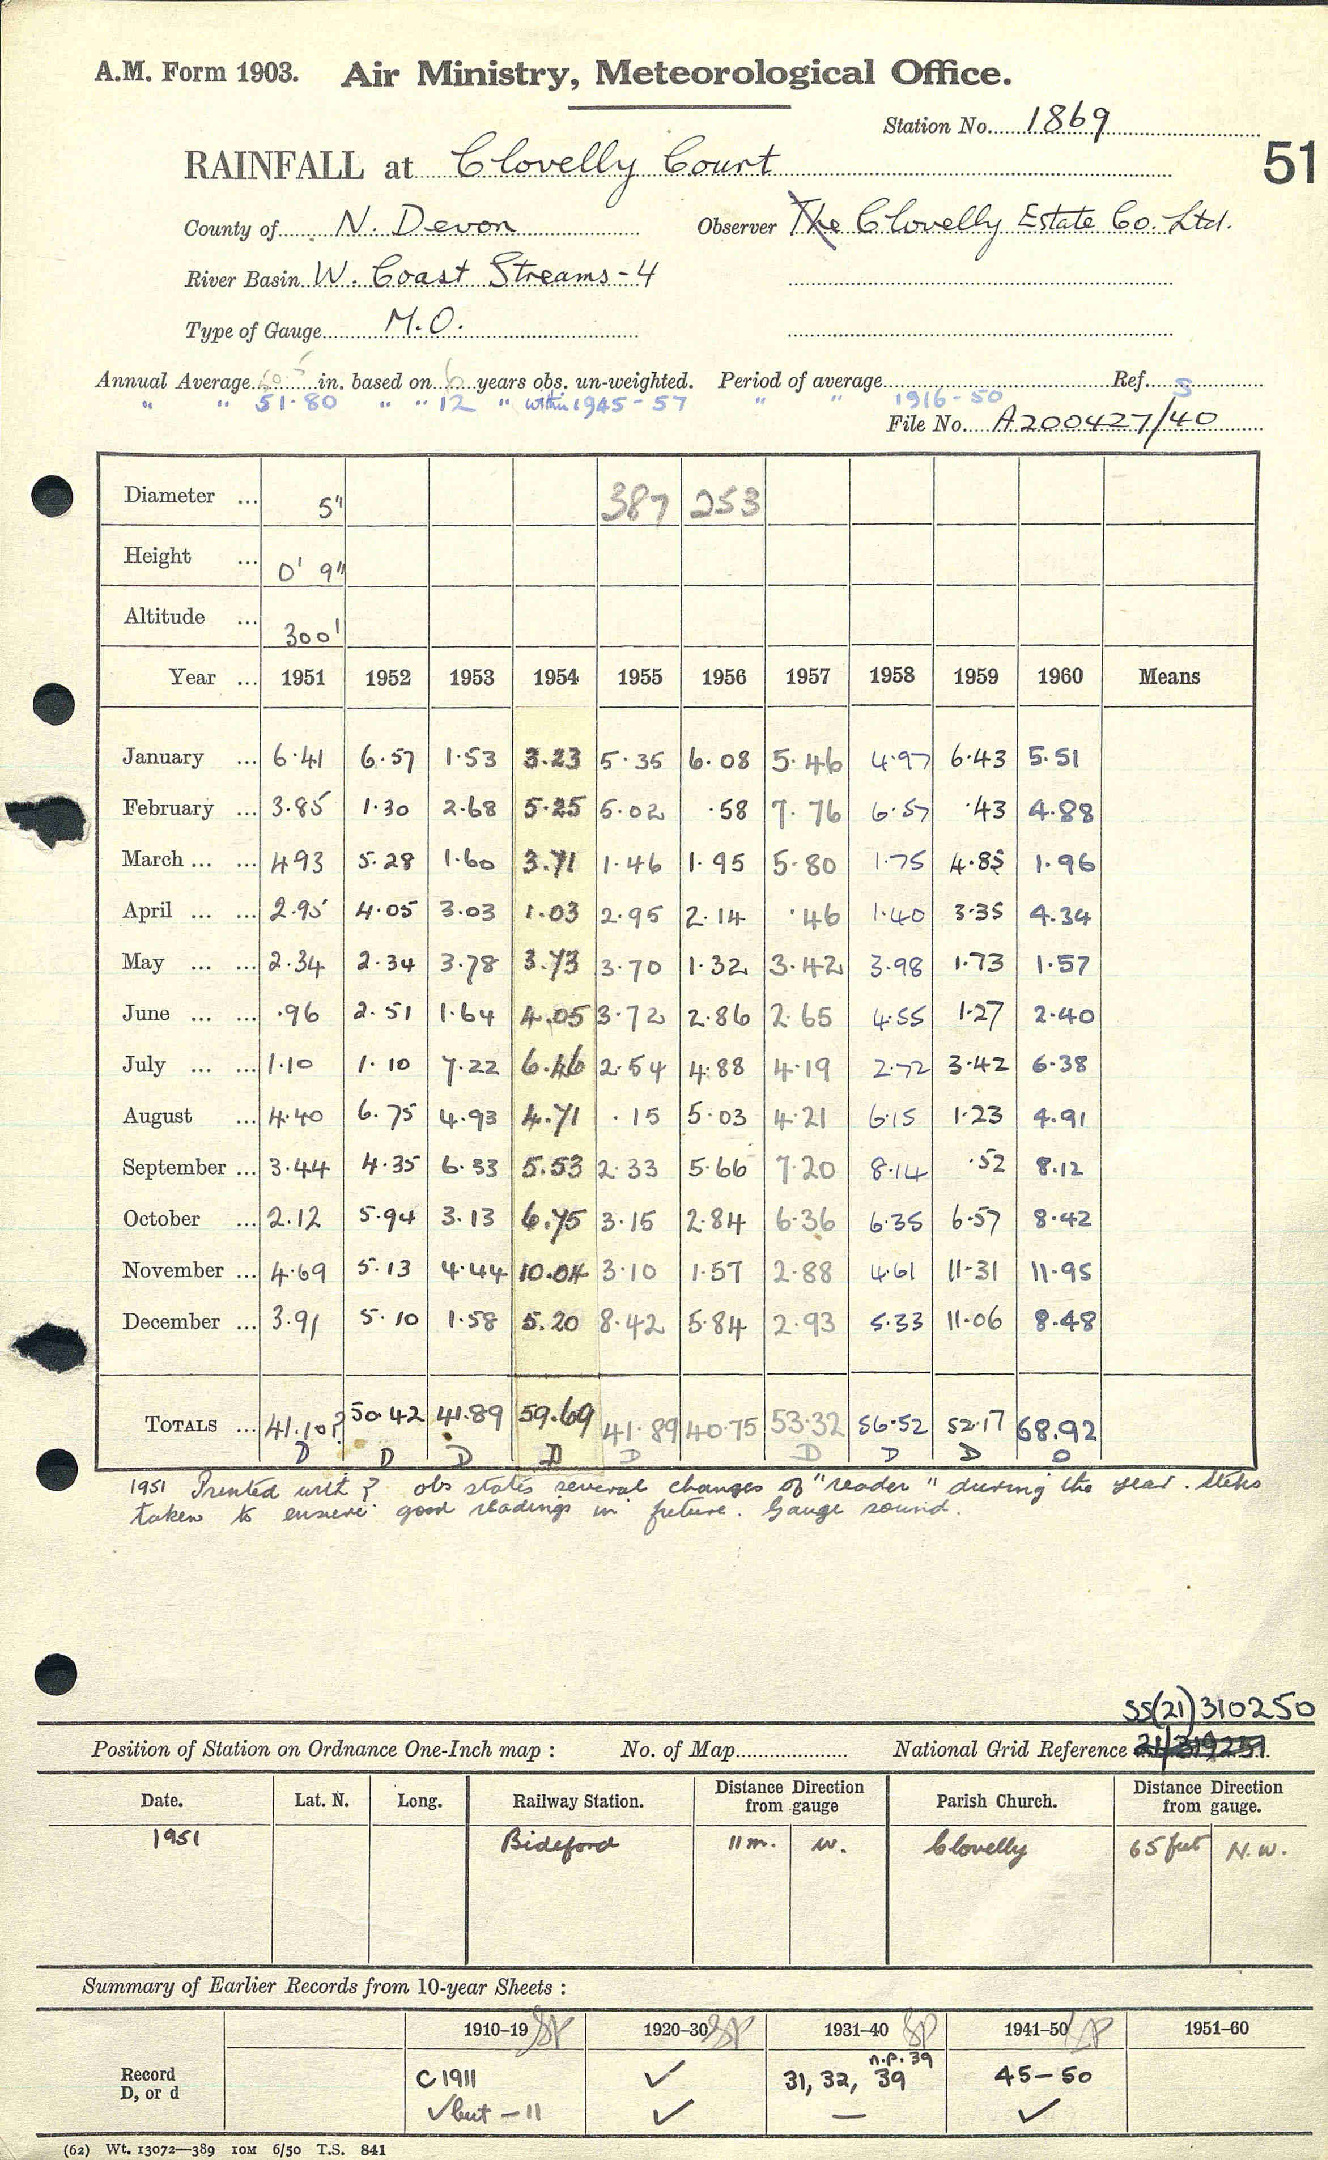 A.M. Form 1903. Air Ministry, Meteorological Office.
Station No. 1869
51
RAINFALL at Clovelly Court
County of N. Devon Observer The Clovelly Estate Co. Ltd.
River Basin W. Coast Streams-4
Type of Gauge M.O.
Annual Average in. based on 6 years obs. un-weighted. Period of average Ref.
" " 51.80 " " 12 " within 1945-57 " " 1916-50 S
File No. A200427/40
Diameter ... 5" 387 253
Height ... 0' 9"
Altitude ... 300'
Year ... 1951 1952 1953 1954 1955 1956 1957 1958 1959 1960 Means
January ... 6.41 6.57 1.53 3.23 5.35 6.08 5.46 4.97 6.43 5.51
February ... 3.85 1.30 2.68 5.25 5.02 .58 7.76 6.57 .43 4.88
March ... ... 4.93 5.28 1.60 3.71 1.46 1.95 5.80 1.75 4.85 1.96
April ... ... 2.95 4.05 3.03 1.03 2.95 2.14 .46 1.40 3.35 4.34
May ... ... 2.34 2.34 3.78 3.73 3.70 1.32 3.42 3.98 1.73 1.57
June ... ... .96 2.51 1.64 4.05 3.72 2.86 2.65 4.55 1.27 2.40
July ... ... 1.10 1.10 7.22 6.46 2.54 4.88 4.19 2.72 3.42 6.38
August ... 4.40 6.75 4.93 4.71 .15 5.03 4.21 6.15 1.23 4.91
September ... 3.44 4.35 6.33 5.53 2.33 5.66 7.20 8.14 .52 8.12
October ... 2.12 5.94 3.13 6.75 3.15 2.84 6.36 6.35 6.57 8.42
November ... 4.69 5.13 4.44 10.04 3.10 1.57 2.88 4.61 11.31 11.95
December ... 3.91 5.10 1.58 5.20 8.42 5.84 2.93 5.33 11.06 8.48
TOTALS ... 41.10? 50.42 41.89 59.69 41.89 40.75 53.32 56.52 52.17 68.92
D D D D D D D D D
1951 Printed with ? obs states several changes of "reader" during the year. Steps
taken to ensure good readings in future. Gauge sound.
SS(21)310250
Position of Station on Ordnance One-Inch map : No. of Map National Grid Reference 21/319251
Date. Lat. N. Long. Railway Station. Distance Direction from gauge Parish Church. Distance Direction from gauge.
1951 Bideford 11m. W. Clovelly 65 feet N.W.
Summary of Earlier Records from 10-year Sheets :
1910-19 SP 1920-30 SP 1931-40 SP 1941-50 SP 1951-60
n.p. 39
Record D, or d C1911 ✓ 31, 32, 39 45-50
✓ but - 11 ✓ — ✓
(62) Wt. 13072—389 10M 6/50 T.S. 841